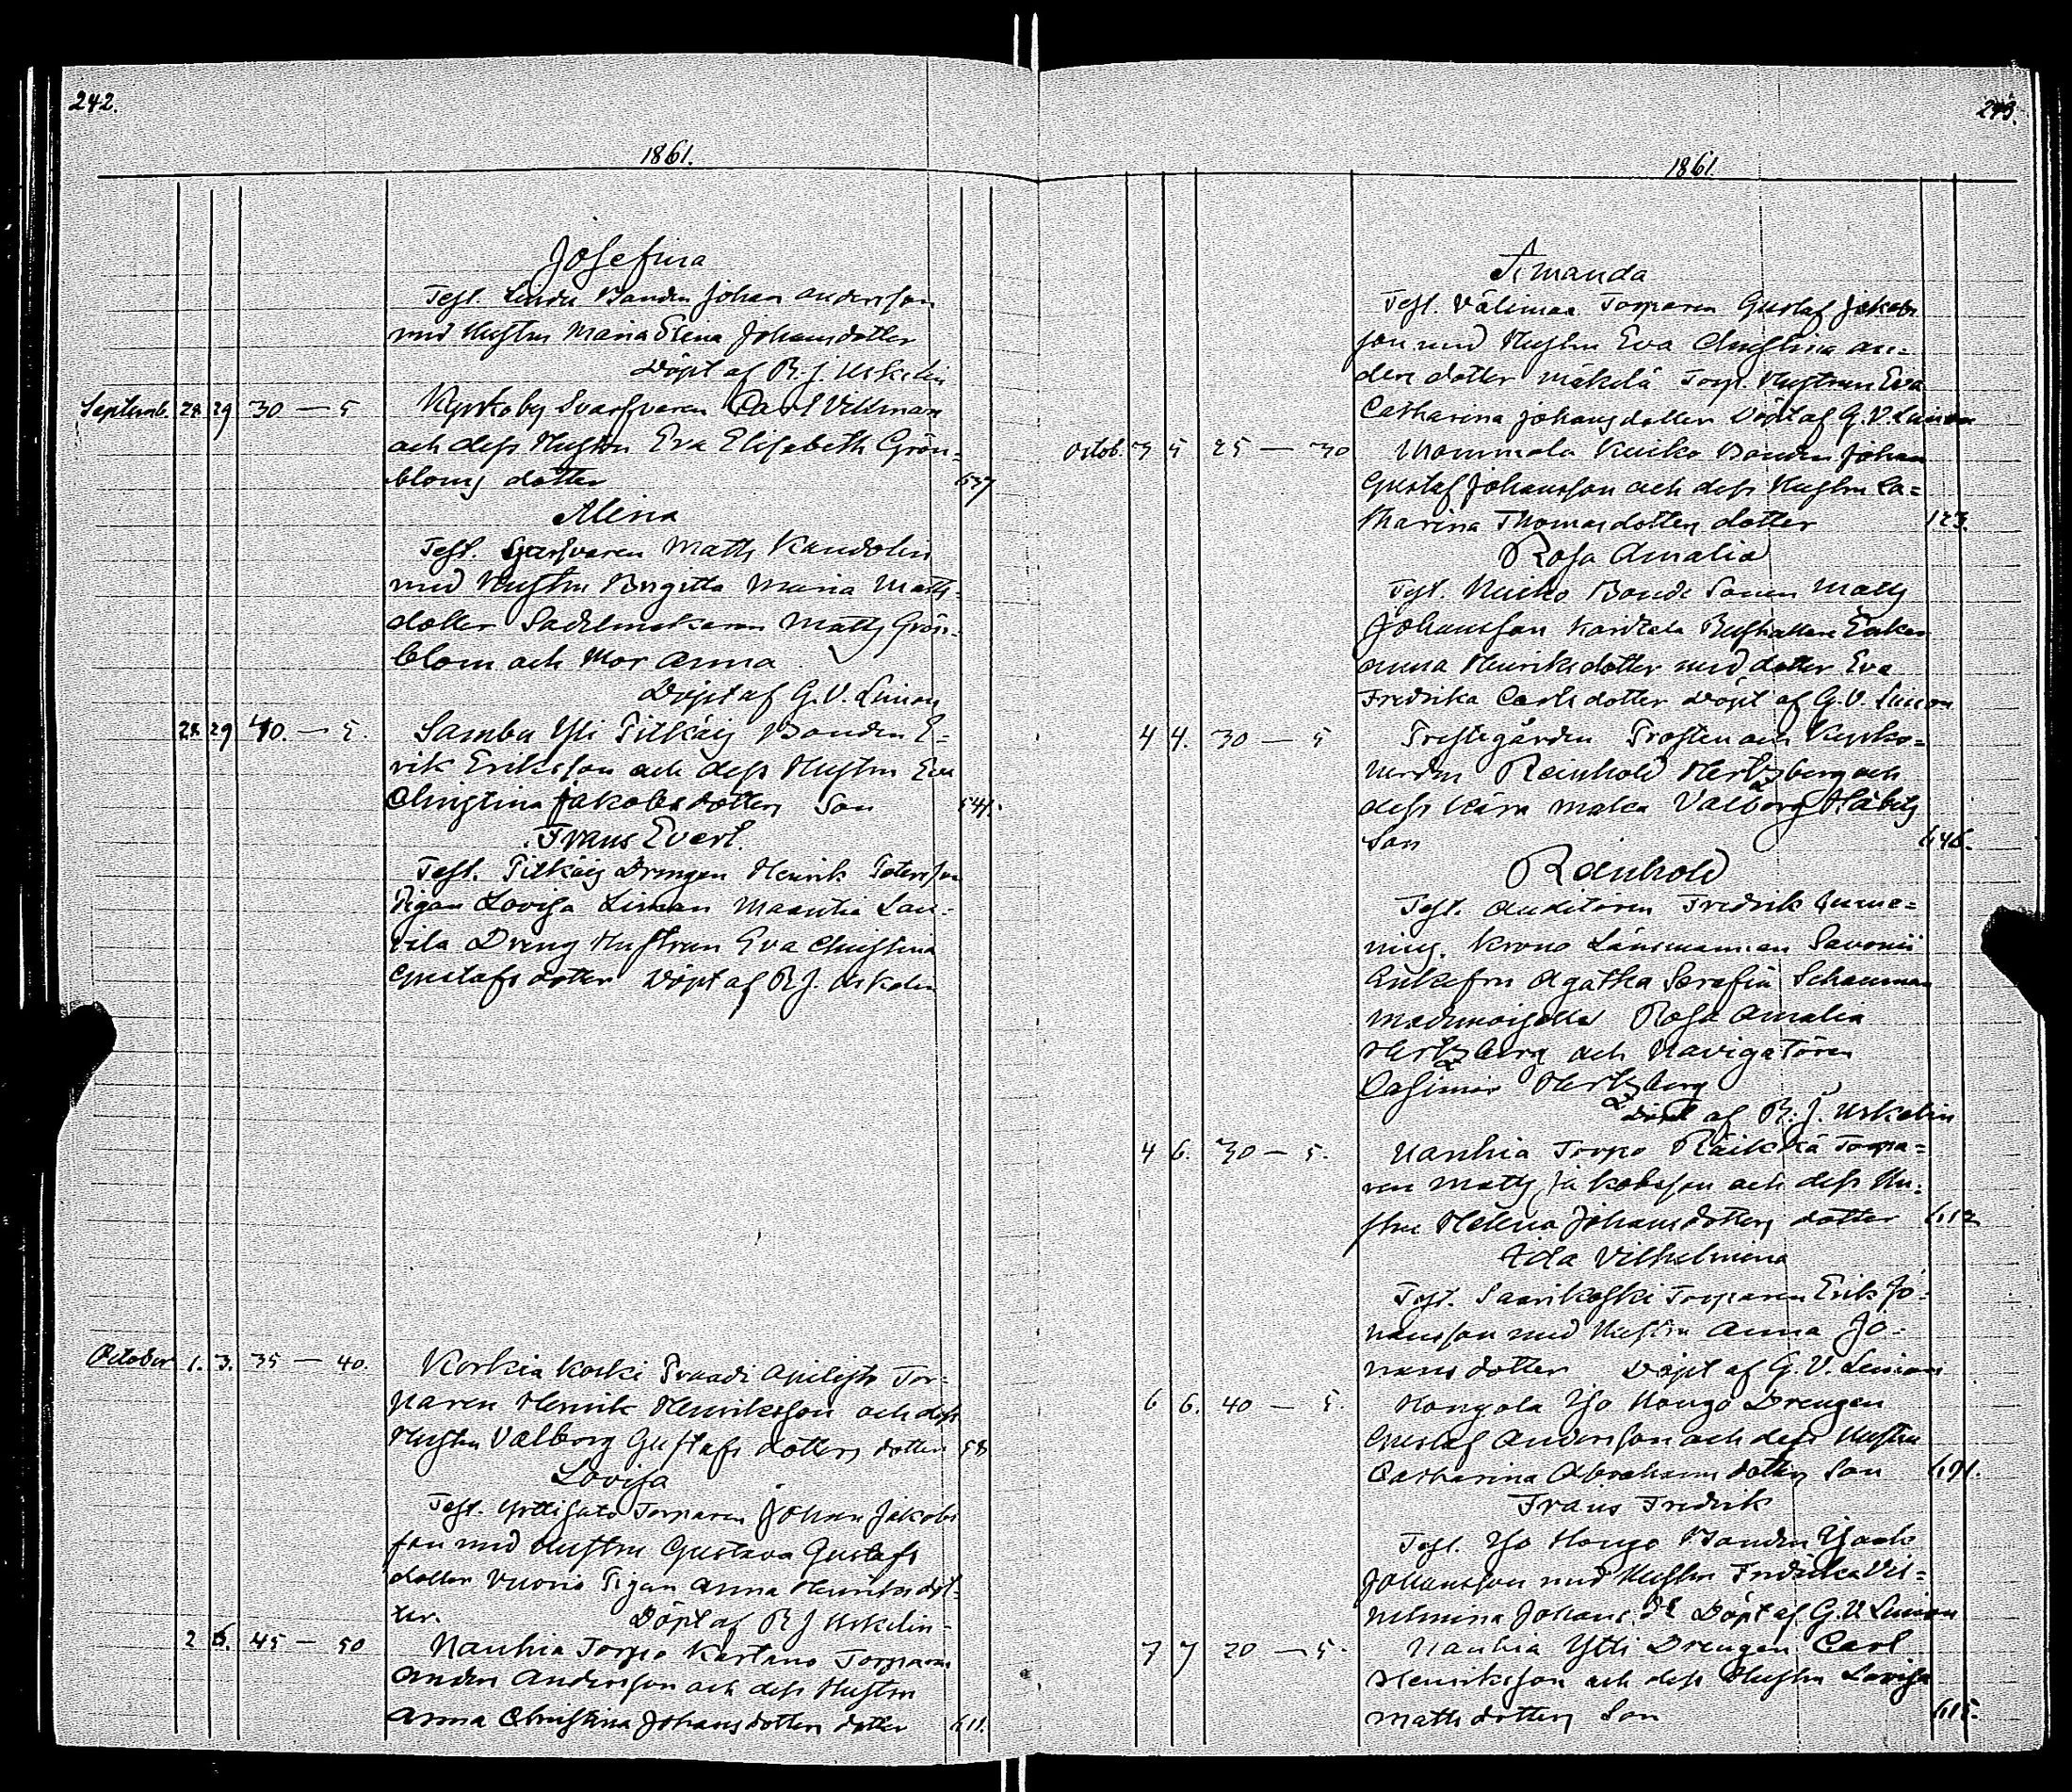 242.
1861.
Josefina
Test. Bonden Johan Andersson
med Hustru Maria Elena Johansdotter
Döpt af R. J. Uskelin
Septemb. 28 29 30 — 5 Kyrkoby Svarfvaren Carl Villman
och dess Hustru Eva Elisabeth Grön=
bloms dotter 637
Alina
Test. Svarfvaren Matts Kandolin
med Hustru Brigitta Maria Matts=
dotter Sadelmakaren Matts Grön=
blom och Mor Anna
Döpt af G. V. Limon
28 29 40. — 5. Sambu Yli Pitkäis Bonden E=
rik Eriksson och dess Hustru Eva
Christina Jakobsdotters Son 541.
Frans Evert.
Test. Pitkäis Drengen Henrik Petersson
Pigan Lovisa Maantie Lau=
rila Dreng Hustrun Eva Christina
Gustafsdotter Döpt af R J. Uskelin
October 1. 3. 35 — 40. Korkiakoski Tor=
paren Henrik Henriksson och dess
Hustru Valborg Gustafsdotters dotter 58
Lovisa
Test. Torparen Johan Jakobs
son med Hustru Gustava Gustafs
dotter Vuorio Pigan Anna Henriksdot=
ter. Döpt af R J Uskelin
2 6. 45 — 50 Nauhia Torpo Kartano Torparen
Anders Andersson och dess Hustru
Anna Christina Johansdotters dotter 611.
243.
1861.
Amanda
Test. Välimaa Torparen Gustaf Jakobs
son med Hustru Eva Christina An=
ders dotter Mäkelä Torp. Hustrun Eva
Catharina Johansdotter Döpt af G. V. Limon
Octob. 3 5 25 — 30 Mommola Bonden Johan
Gustaf Johansson och dess Hustru Ca=
tharina Thomasdotters dotter 123.
Rosa Amalia
Test. Bonde Sonen Matts
Johansson Enkan
Anna Henriksdotter med dotter Eva
Fredrika Carlsdotter Döpt af G. V. Limon
4 4. 30 — 5 Prestegården Prosten och Kyrko=
herden Reinhold Hertzberg och
dess Kära maka Valborg
Son 646.
Reinhold
Test. Auditören Fredrik
Krono Länsmannen Savonii
Enkefru Agatha Serafia Schauman
Mademoiselle Rosa Amalia
Hertzberg och Navigatören
Casimir Hertzberg
Döpt af R. J. Uskelin
4 6. 30 — 5. Nauhia Torpo Räikkä Torpa=
ren Matts Jakobsson och dess Hu=
stru Helena Johansdotters dotter 612
Ida Vilhelmina
Test. Saarikoski Torparen Erik Jo=
hansson med Hustru Anna Jo=
hansdotter Döpt af G. V. Limon
6 6. 40 — 5. Hongola Iso Hongo Drengen
Gustaf Andersson och dess Hustru
Catharina Abrahamsdotters Son 691.
Frans Fredrik
Test. Iso Hongo Bonden Isaak
Johansson med Hustru Fredrika Vil=
helmina Johans Dr Döpt af G. V. Limon
7 7 20 — 5. Nauhia Ytli Drengen Carl
Henriksson och dess Hustru Lovisa
Mattsdotters Son 615.